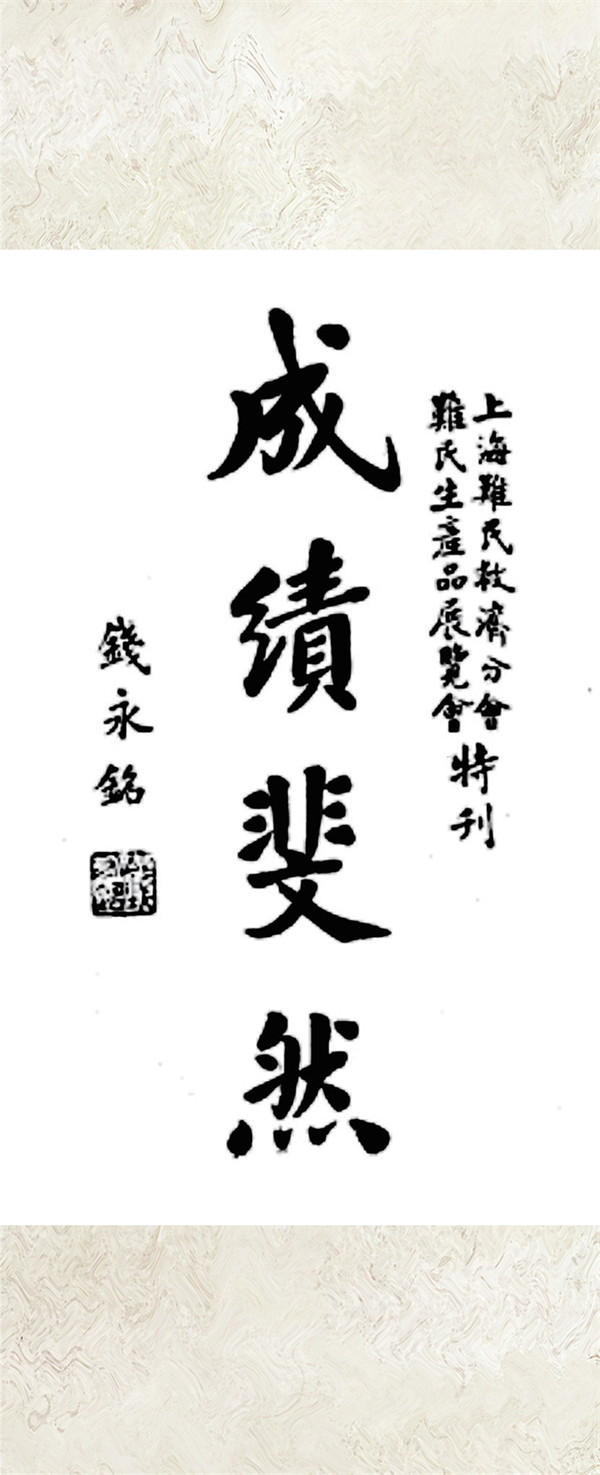 上海難民救濟分會
難民生產品展覽會
特刊
成績斐然
錢永銘